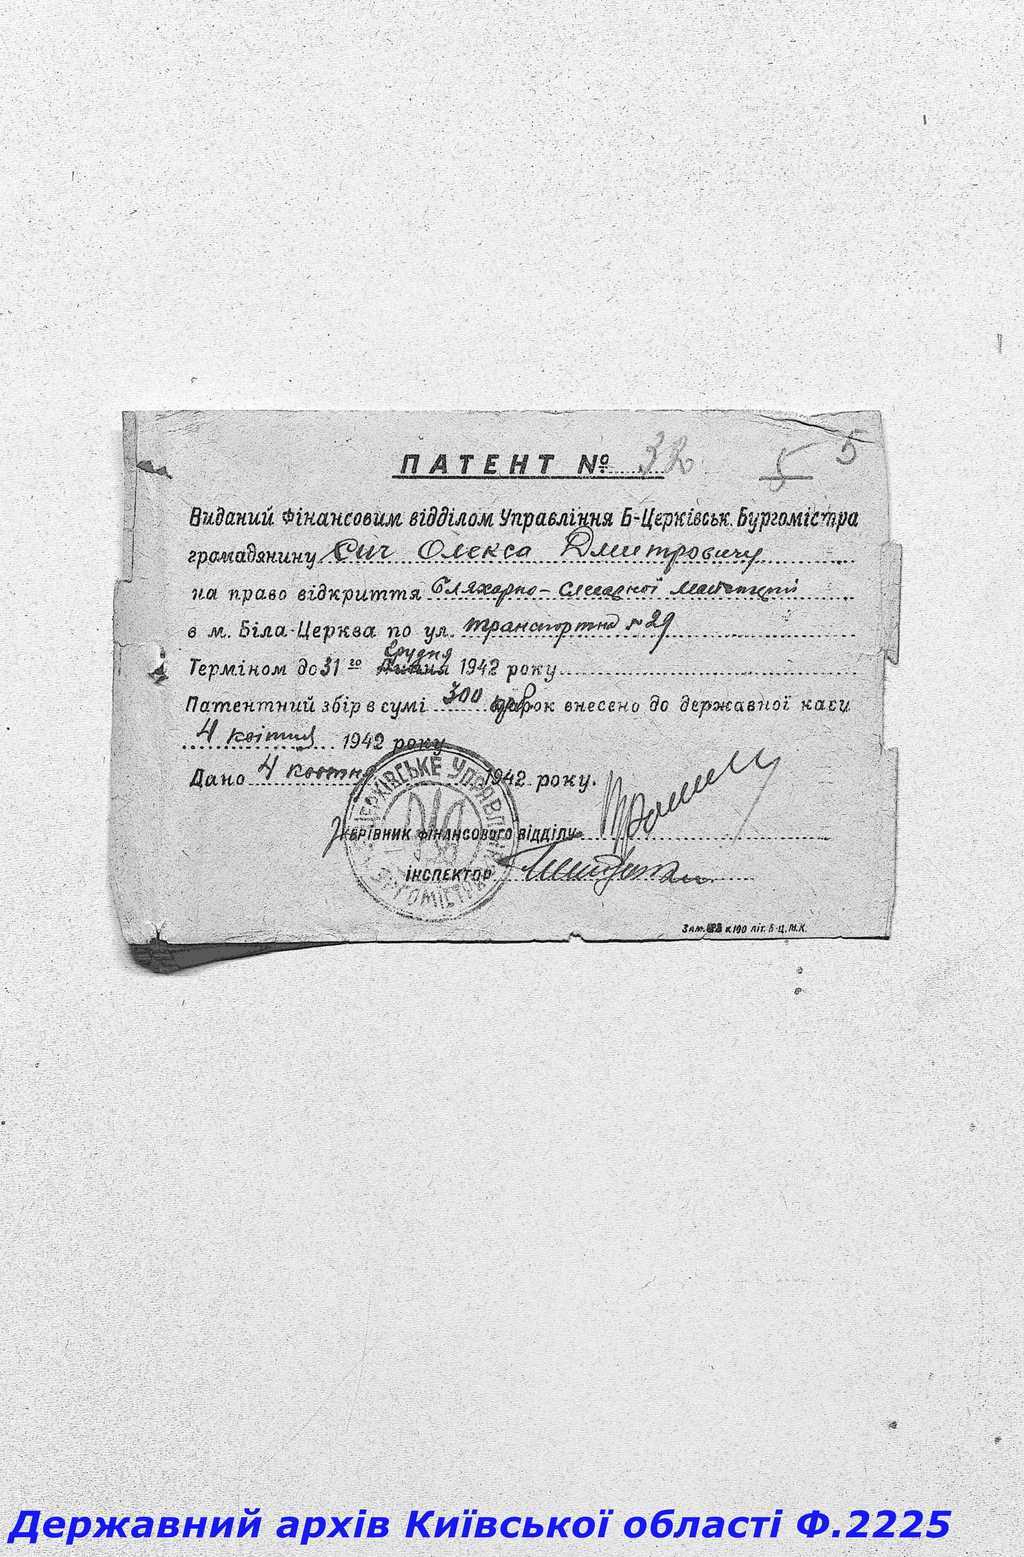 ПАТЕНТ № 32
5 5
Виданий Фінансовим відділом Управління Б-Церківськ. Бургомістра
громадянину Сич Олекса Дмитровичу
на право відкриття Бляхарно-слюсарної майстерні
в м. Біла-Церква по ул. Транспортна № 29
Грудня
Терміном до 31 го Липня 1942 року
Патентний збір в сумі 300 крб внесено до державної каси
4 квітня 1942 року
Дано 4 квітня 1942 року.
ЦЕРКІВСЬКЕ УПРАВЛІННЯ БУРГОМІСТРА
Керівник фінансового відділу
Інспектор
Зам. к.100 літ. Б-Ц. М.К.
Державний архів Київської області Ф.2225